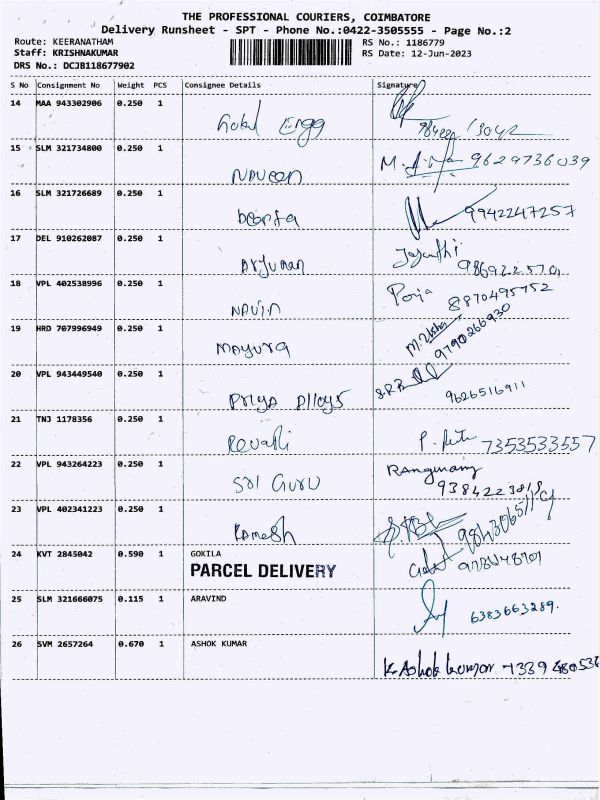 THE PROFESSIONAL COURIERS, COIMBATORE
Delivery Runsheet - SPT - Phone No.:0422-3505555 - Page No.:2
Route: KEERANATHAM RS No.: 1186779
Staff: KRISHNAKUMAR RS Date: 12-Jun-2023
DRS No.: DCJB118677902
S No Consignment No Weight PCS Consignee Details Signature
14 MAA 943302906 0.250 1 Engg
15 SLM 321734800 0.250 1 Naveen 9629736039
16 SLM 321726689 0.250 1 Deepta 9942247257
17 DEL 910262087 0.250 1 Arjunan Jayanthi
18 VPL 402538996 0.250 1 Navin 8870495752
19 HRD 767996949 0.250 1 Mayura M. Usha 9790266930
20 VPL 943449540 0.250 1 Priya Alloys 9626516911
21 TNJ 1178356 0.250 1 Revathi 7353533557
22 VPL 943264223 0.250 1 Sri Guru
23 VPL 402341223 0.250 1 Ramesh
24 KVT 2845042 0.590 1 GOKILA
PARCEL DELIVERY
25 SLM 321666075 0.115 1 ARAVIND 6383663289.
26 SVM 2657264 0.670 1 ASHOK KUMAR
K. Ashok kumar